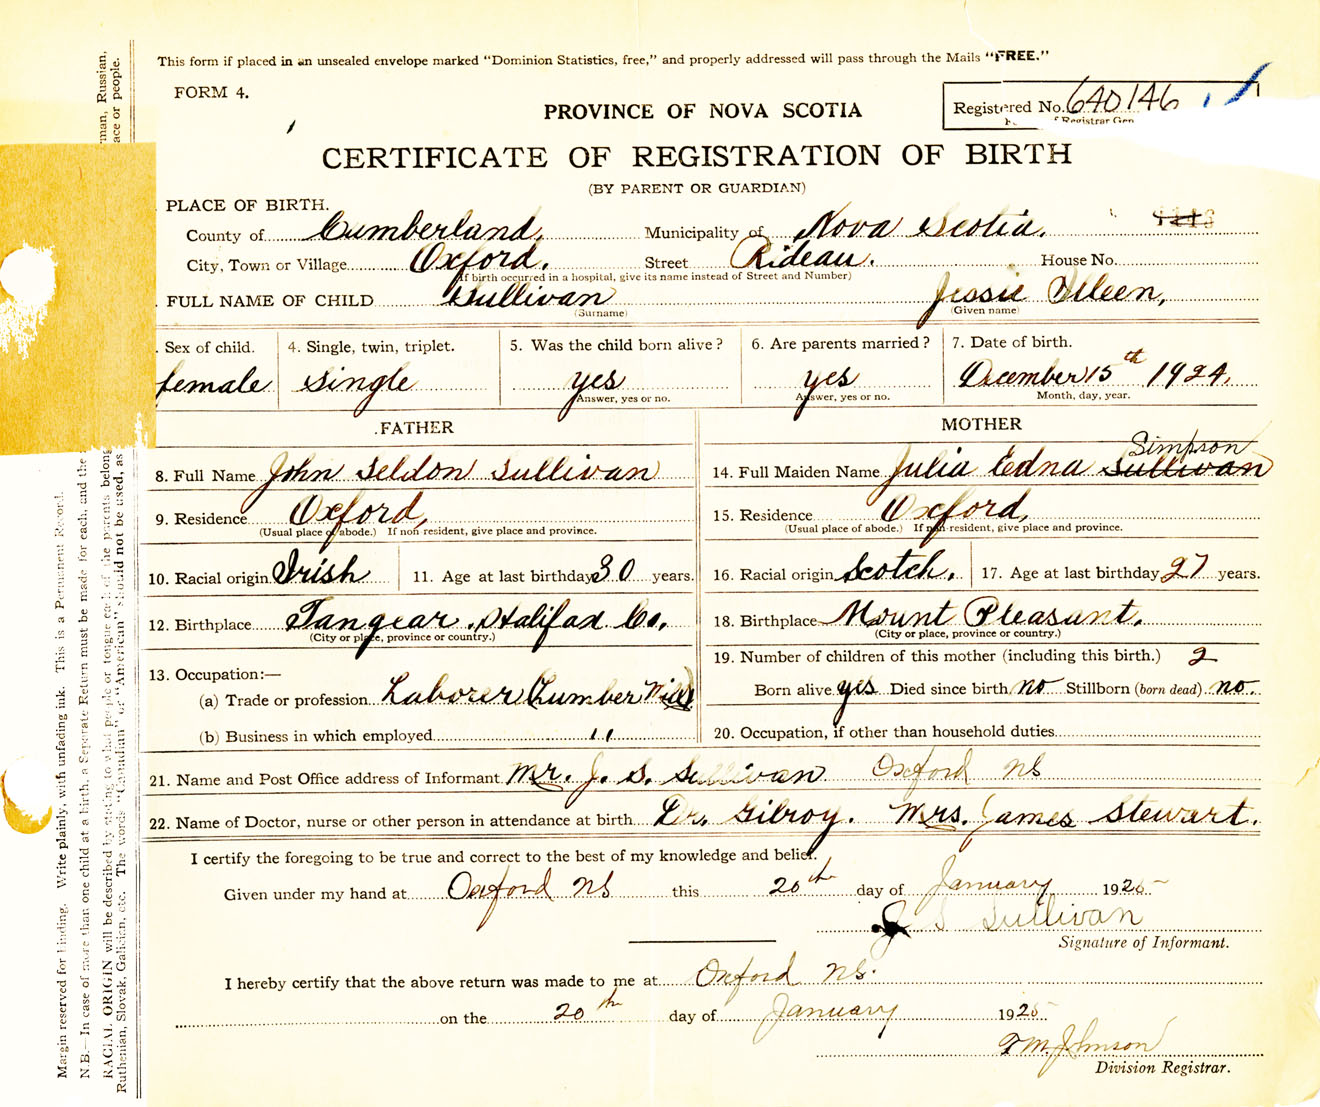 This form if placed in an unsealed envelope marked "Dominion Statistics, free," and properly addressed will pass through the Mails "FREE."
FORM 4.
Registered No. 640146
PROVINCE OF NOVA SCOTIA
CERTIFICATE OF REGISTRATION OF BIRTH
(BY PARENT OR GUARDIAN)
PLACE OF BIRTH.
County of Cumberland. Municipality of Nova Scotia.
City, Town or Village Oxford. Street Rideau. House No.
(If birth occurred in a hospital, give its name instead of Street and Number)
FULL NAME OF CHILD Sullivan Jessie Ileen,
(Surname) (Given name)
Sex of child. 4. Single, twin, triplet. 5. Was the child born alive? 6. Are parents married? 7. Date of birth.
female single yes yes December 15th 1924.
Answer, yes or no. Answer, yes or no. Month, day, year.
FATHER MOTHER
Simpson
8. Full Name John Seldon Sullivan 14. Full Maiden Name Julia Edna Sullivan
9. Residence Oxford, 15. Residence Oxford,
(Usual place of abode.) If non resident, give place and province. (Usual place of abode.) If non-resident, give place and province.
10. Racial origin Irish 11. Age at last birthday 30 years. 16. Racial origin Scotch. 17. Age at last birthday 27 years.
12. Birthplace Tangear. Halifax Co. 18. Birthplace Mount Pleasant.
(City or place, province or country.) (City or place, province or country.)
13. Occupation:— 19. Number of children of this mother (including this birth.) 2
(a) Trade or profession Laborer (Lumber Mill) Born alive yes Died since birth no Stillborn (born dead) no.
(b) Business in which employed " 20. Occupation, if other than household duties
21. Name and Post Office address of Informant Mr. J. S. Sullivan Oxford NS
22. Name of Doctor, nurse or other person in attendance at birth Dr. Gilroy. Mrs. James Stewart.
I certify the foregoing to be true and correct to the best of my knowledge and belief.
Given under my hand at Oxford NS this 20th day of January 1925
J S Sullivan
Signature of Informant.
I hereby certify that the above return was made to me at Oxford NS.
on the 20th day of January 1925
T M. Johnson
Division Registrar.
Margin reserved for binding. Write plainly, with unfading ink. This is a Permanent Record.
N.B.—In case of more than one child at a birth, a Separate Return must be made for each, and the
RACIAL ORIGIN will be described by stating to what people or tongue each of the parents belong
rman, Russian,
Ruthenian, Slovak, Galician, etc. The words "Canadian" or "American" should not be used, as
ace or people.